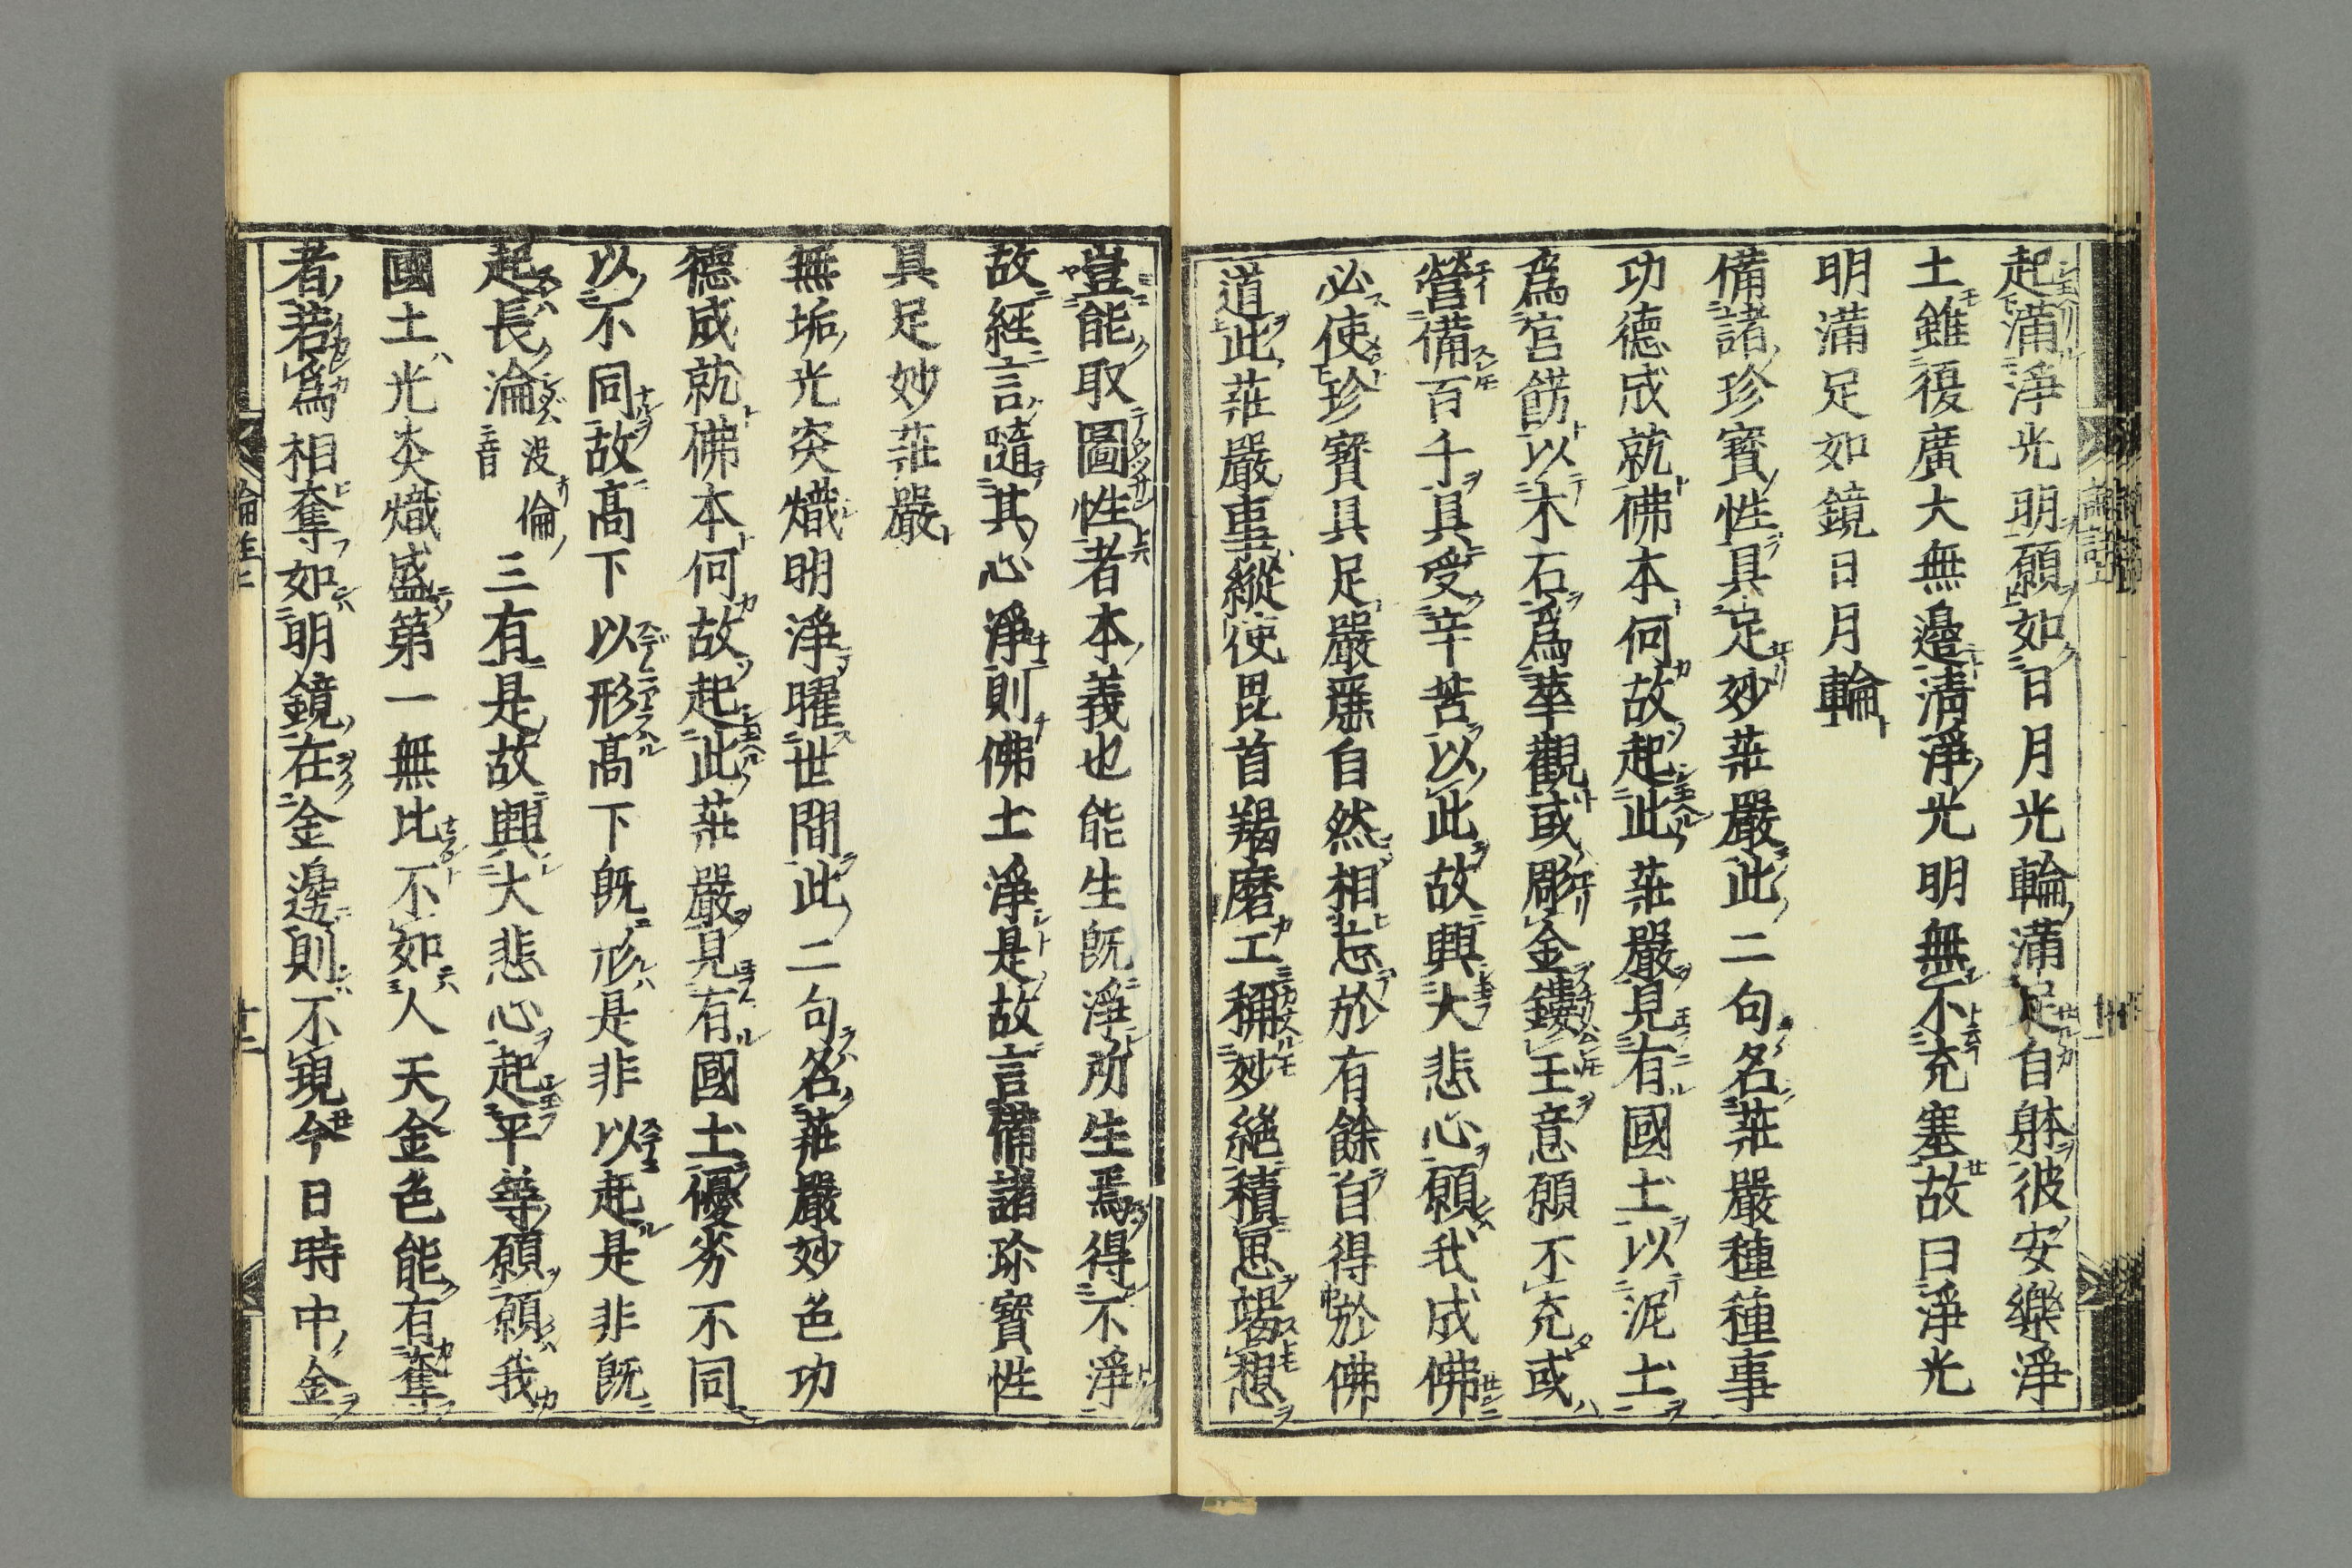 起滿淨光明願如日月光輪滿足自躰彼安樂淨
土雖復廣大無邊清淨光明無不充塞故曰淨光
明滿足如鏡日月輪
備諸珍寶性具足妙莊嚴此二句名莊嚴種種事
功德成就佛本何故起此莊嚴見有國土以泥土
爲宮餝以木石爲華觀或彫金鏤玉意願不充或
營備百千具受辛苦以此故興大悲心願我成佛
必使珍寶具足嚴麗自然相忘於有餘自得於佛
道此莊嚴事縱使毘首羯磨工稱妙絕積思竭想
豈能取圖性者本義也能生既淨所生焉得不淨
故經言隨其心淨則佛土淨是故言備諸珍寶性
具足妙莊嚴
無垢光炎熾明淨曜世間此二句名莊嚴妙色功
德成就佛本何故起此莊嚴見有國土優劣不同
以不同故高下以形高下既形是非以起是非既
起長淪没倫二音三有是故興大悲心起平等願願我
國土光炎熾盛第一無比不如人天金色能有奪
者若爲相奪如明鏡在金邊則不現今日時中金